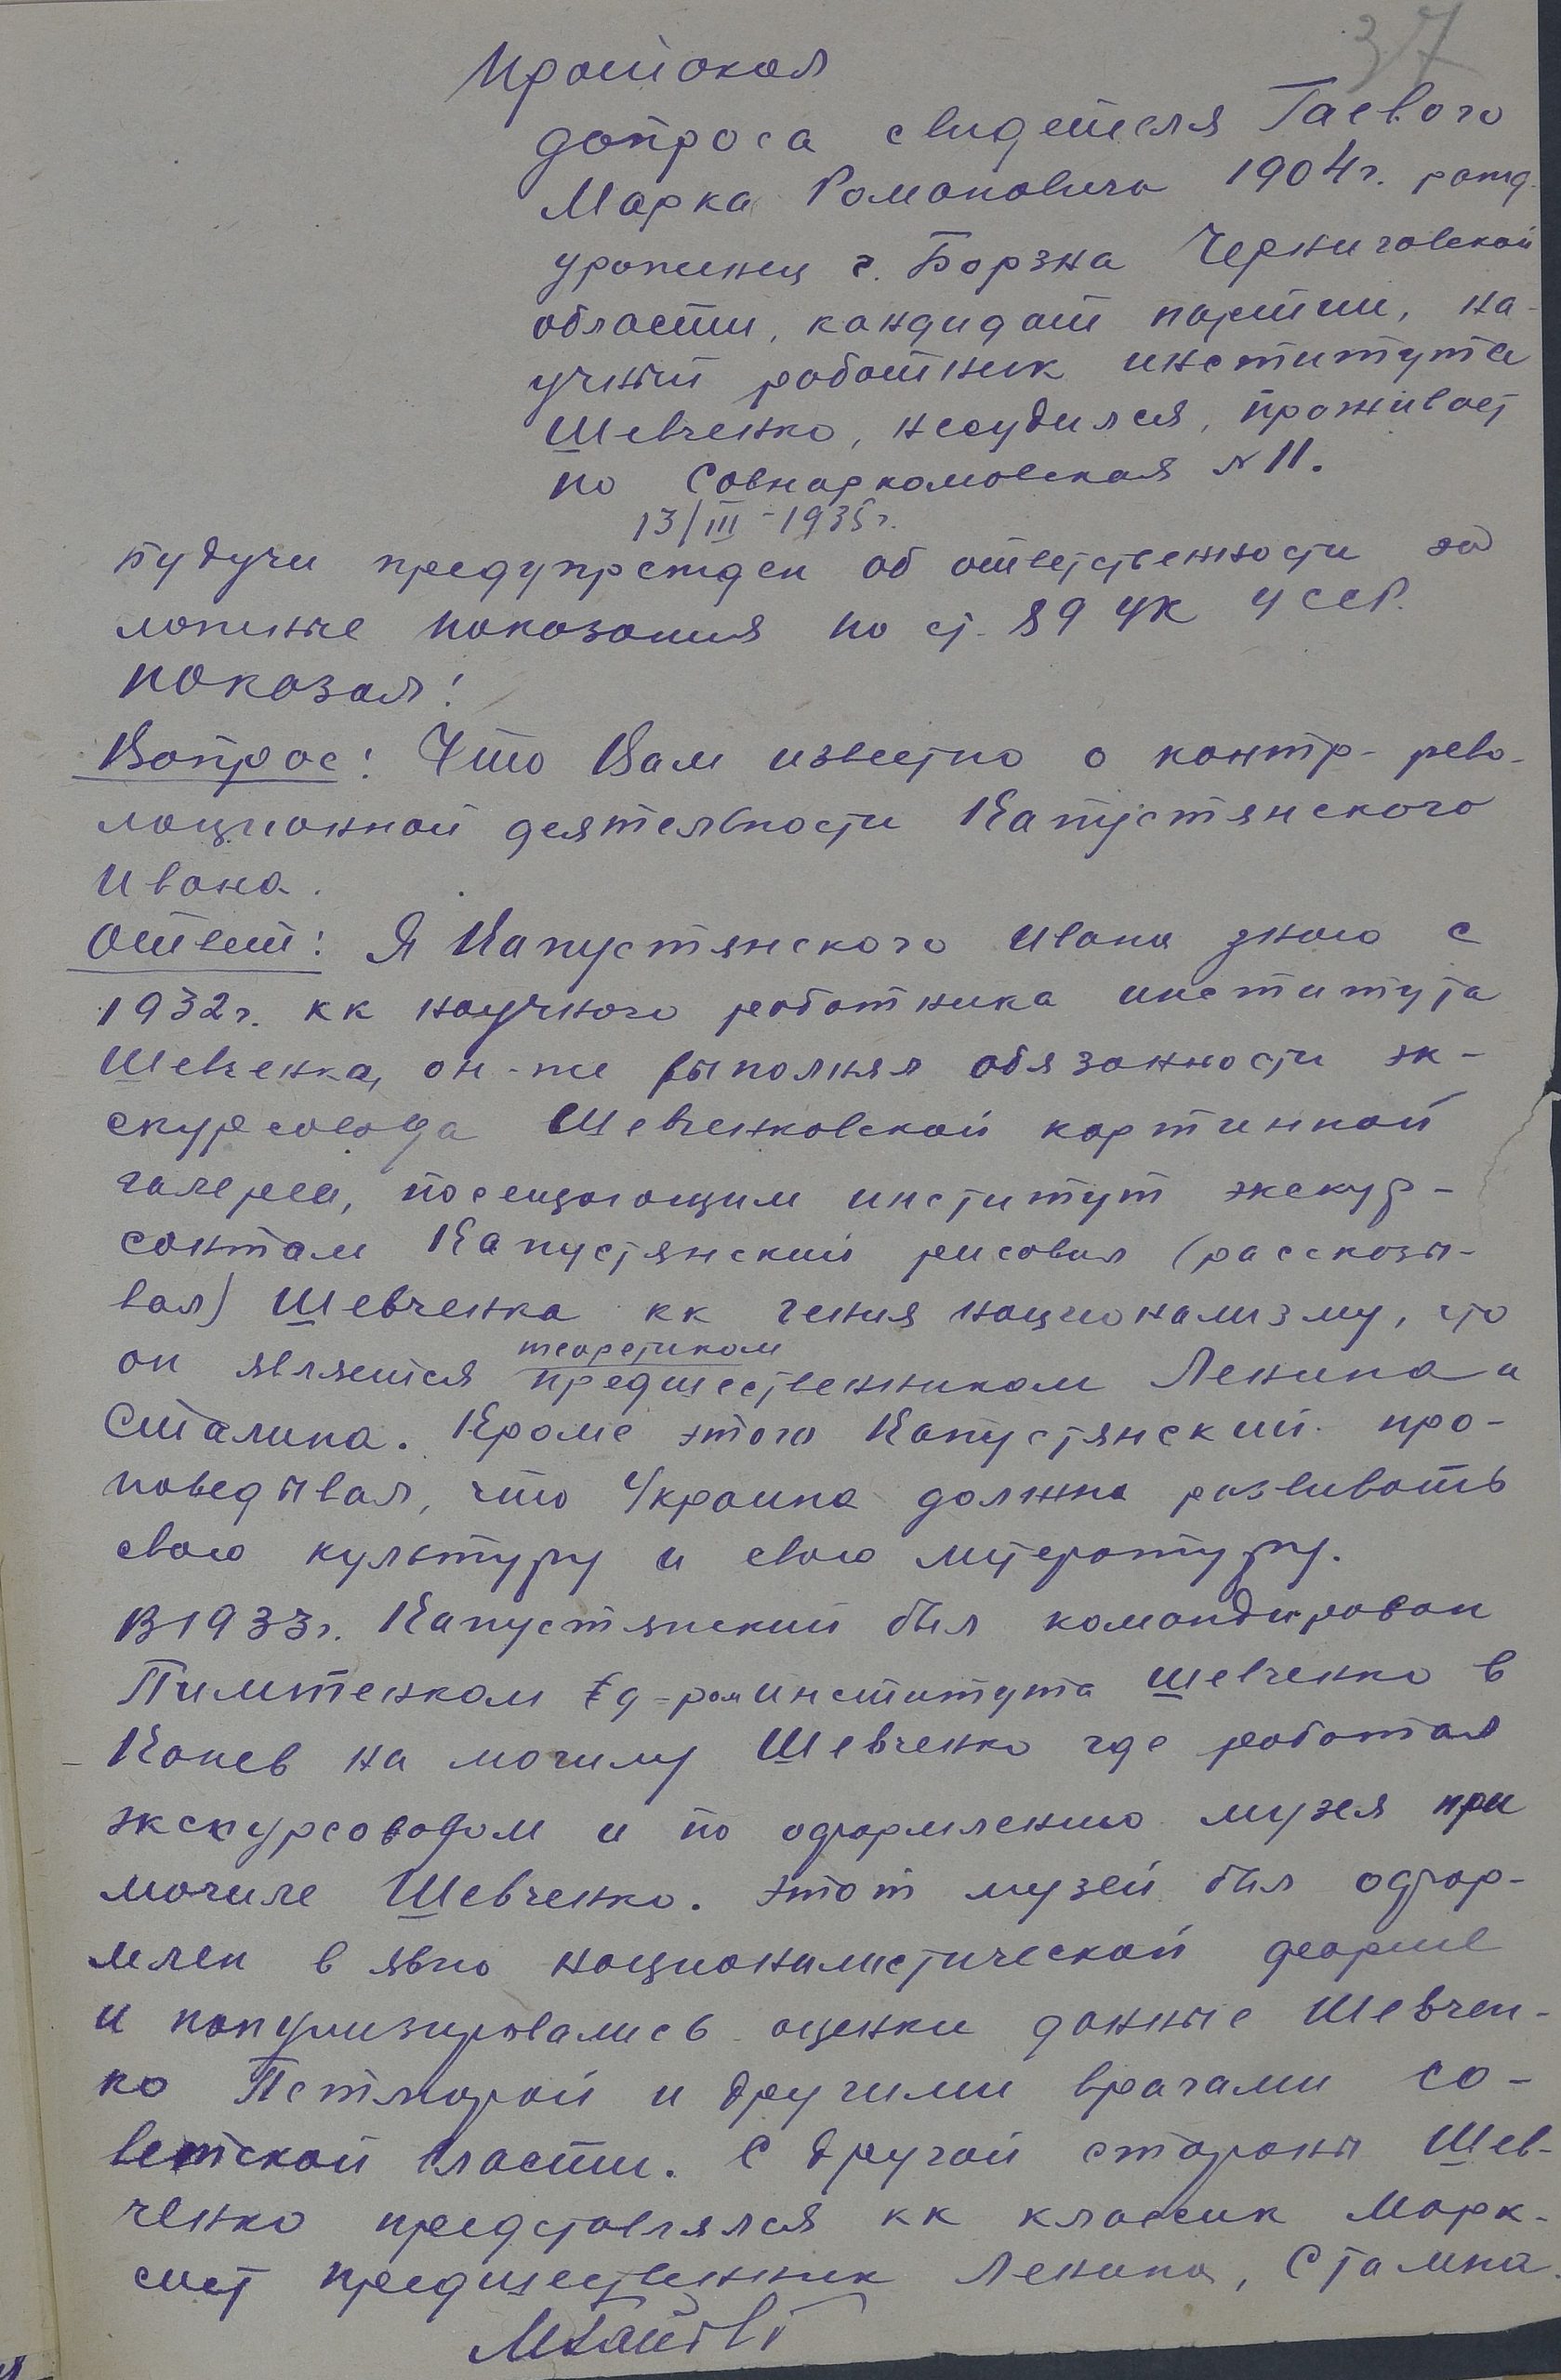 37
Протокол
допроса свидетеля Гаевого
Марка Романовича 1904 г. рожд.
уроженец г. Борзна Черниговской
области, кандидат партии, на-
учный работник института
Шевченко, несудился, проживает
по Совнаркомовская № 11.
13/III - 1935 г.
Будучи предупрежден об ответственности за
ложные показания по ст. 89 УК УССР.
показал:
Вопрос: Что Вам известно о контр-рево-
люционной деятельности Капустянского
Ивана.
Ответ: Я Капустянского Ивана знаю с
1932 г. кк научного работника института
Шевченка, он-же выполнял обязанности эк-
скурсовода Шевченковской картинной
галереи, посещающим институт экскур-
сантам Капустянский рисовал (рассказы-
вал) Шевченка кк гения национализму, что
теоретиком
он является предшественником Ленина и
Сталина. Кроме этого Капустянский про-
поведывал, что Украина должна развивать
свою культуру и свою литературу.
В 1933 г. Капустянский был командирован
д-ром института Шевченко в
Канев на могилу Шевченко где работал
экскурсоводом и по оформлению музея при
могиле Шевченко. Этот музей был офор-
млен в явно националистической форме
и популизировались оценки данные Шевчен-
ко Петлюрой и другими врагами со-
ветской власти. С другой стороны Шев-
ченко представлялся кк классик Марк-
сист предшественник Ленина, Сталина.